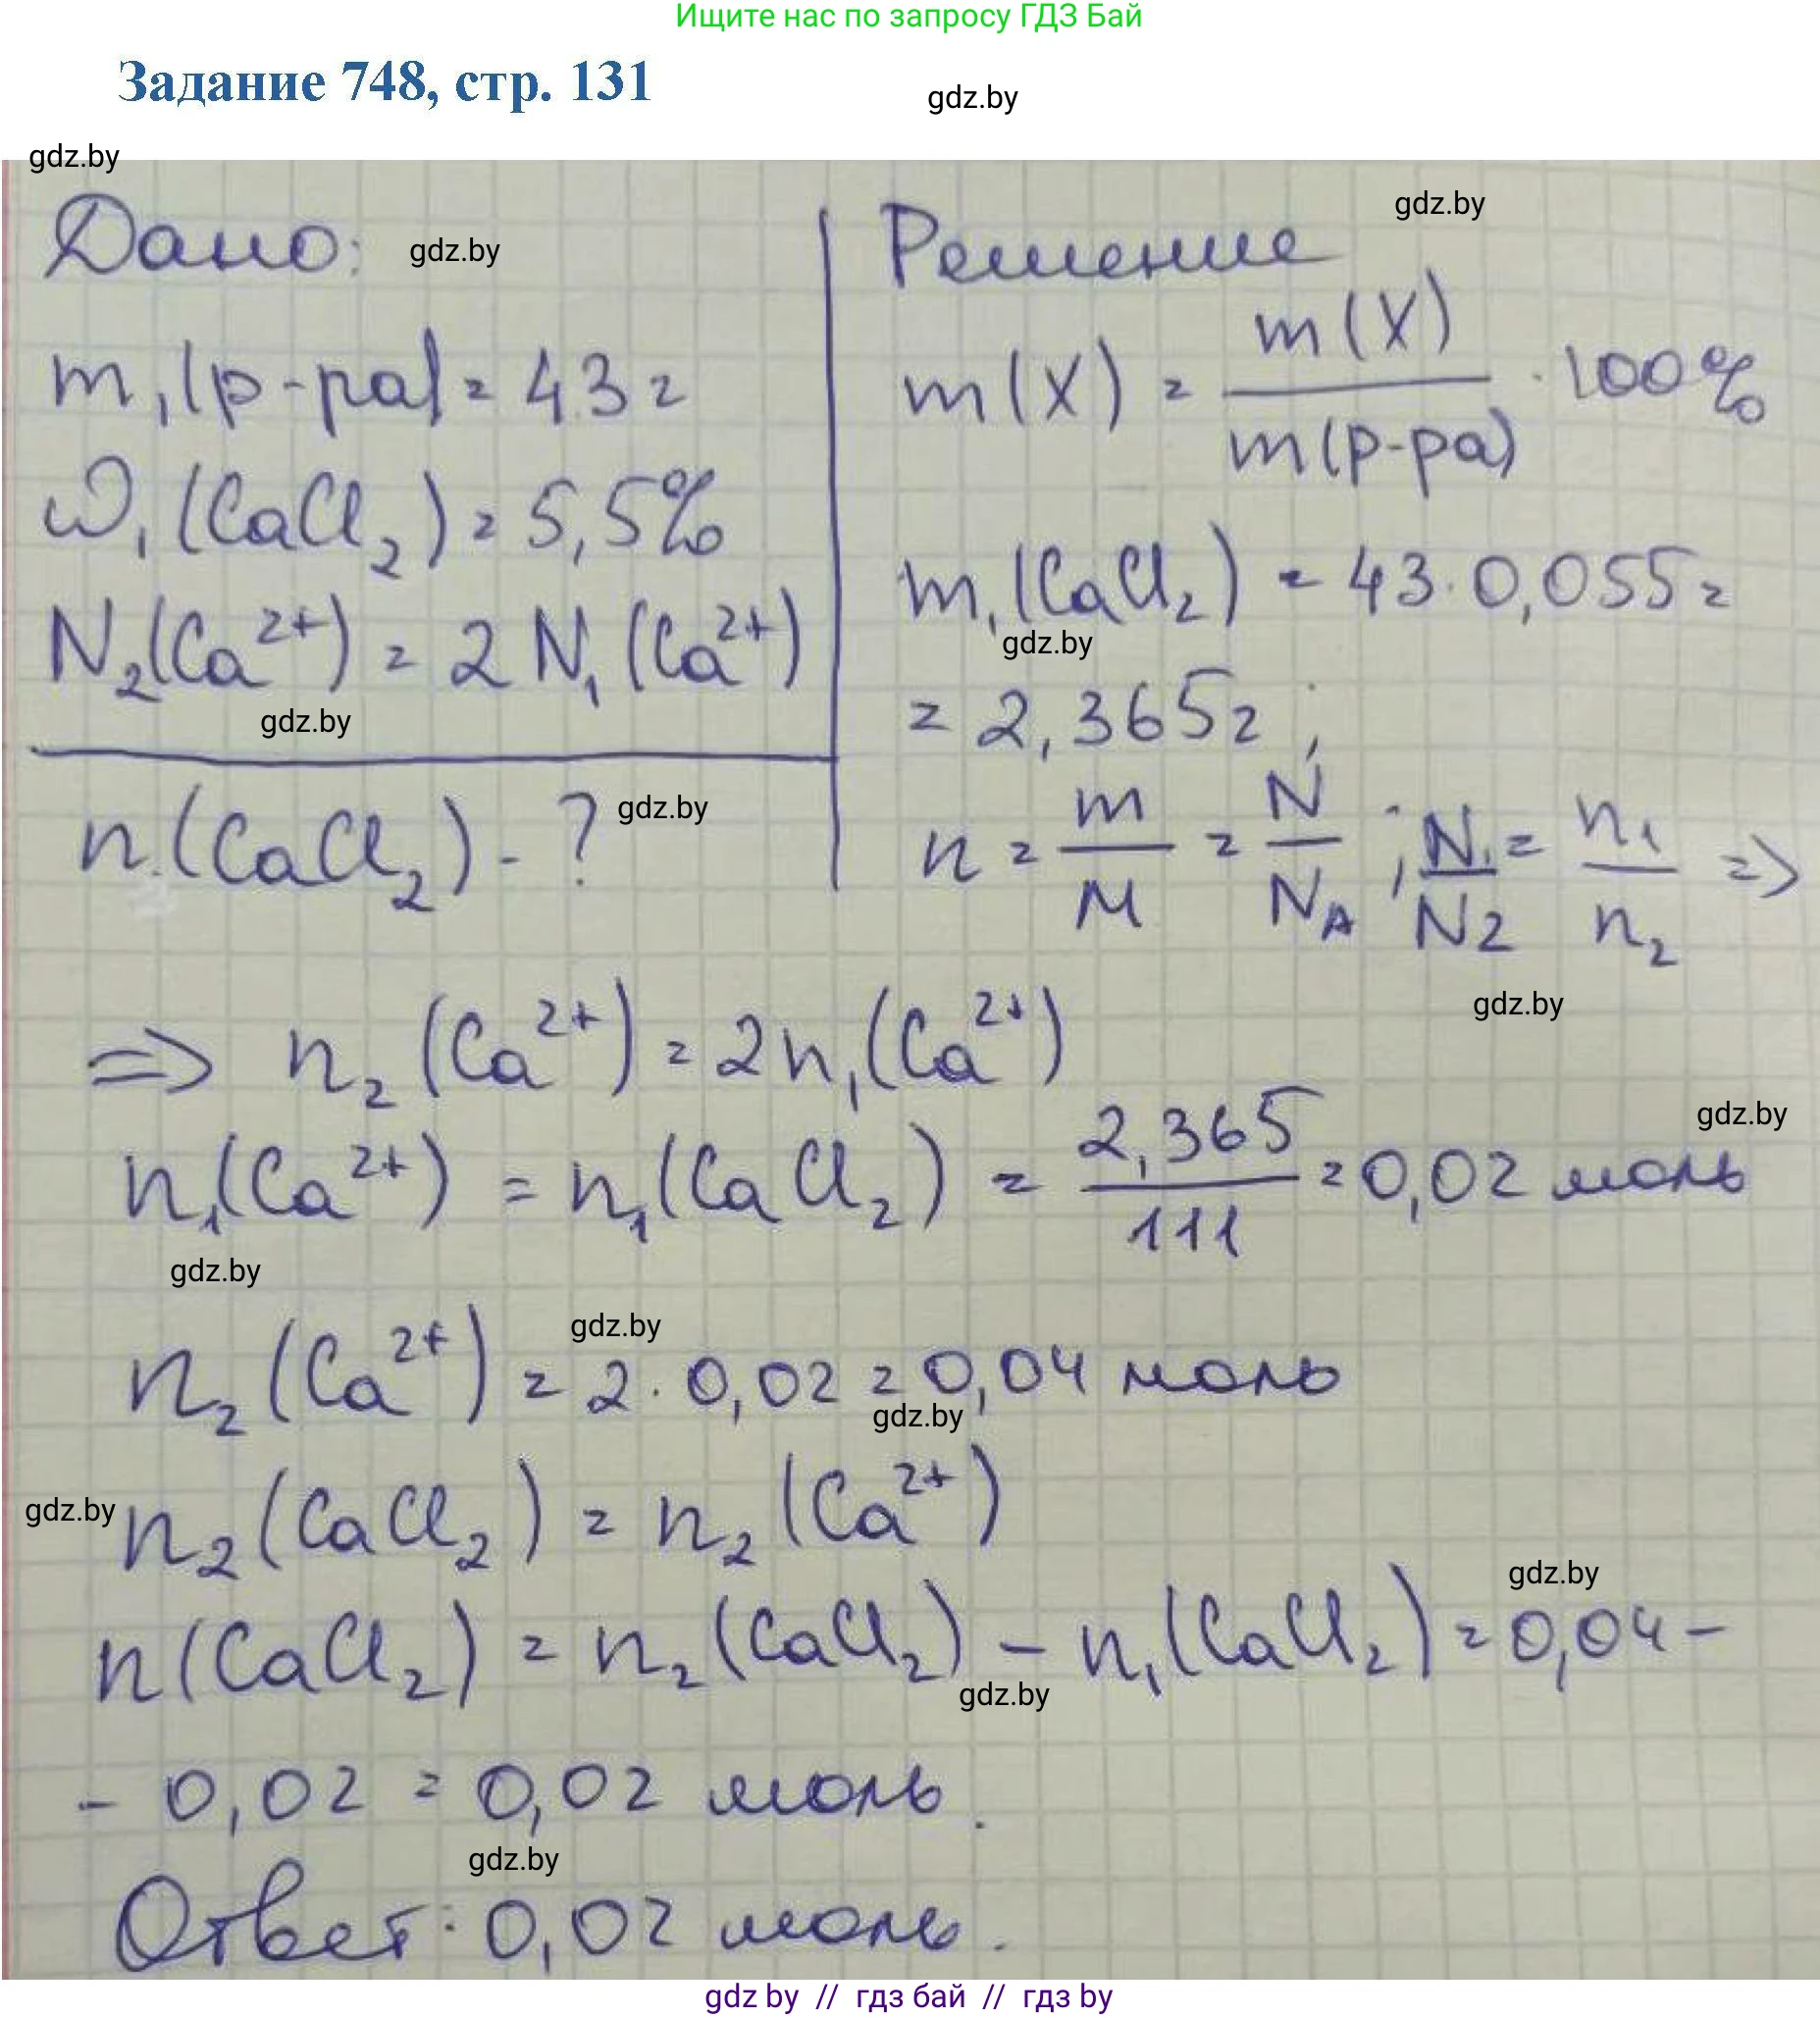 Ищите нас по запросу ГДЗ Бай
Задание 748, стр. 131
gdz.by
gdz.by
Дано:
gdz.by
m₁(р-ра) = 43 г
ω₁(CaCl₂) = 5,5%
N₂(Ca²⁺) = 2 N₁(Ca²⁺)
gdz.by
n(CaCl₂) - ?
gdz.by
gdz.by
Решение
m(X) = m(X) / m(р-ра) · 100%
m₁(CaCl₂) = 43 · 0,055 =
gdz.by
= 2,365 г ;
n = m / M = N / N_A ; N₁ / N₂ = n₁ / n₂ =>
gdz.by
=> n₂(Ca²⁺) = 2n₁(Ca²⁺)
gdz.by
n₁(Ca²⁺) = n₁(CaCl₂) = 2,365 / 111 = 0,02 моль
gdz.by
gdz.by
n₂(Ca²⁺) = 2 · 0,02 = 0,04 моль
gdz.by
gdz.by
n₂(CaCl₂) = n₂(Ca²⁺)
gdz.by
n(CaCl₂) = n₂(CaCl₂) - n₁(CaCl₂) = 0,04 -
gdz.by
- 0,02 = 0,02 моль.
gdz.by
Ответ: 0,02 моль.
gdz by // гдз бай // гдз by